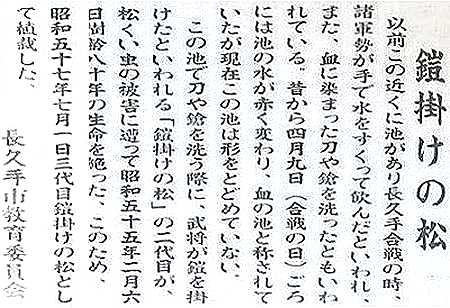 鎧掛けの松
以前この近くに池があり長久手合戦の時
諸軍勢が手で水をすくって飲んだといわれ、
また、血に染まった刀や鎗を洗ったともいわ
れている。昔から四月九日（合戦の日）ごろ
には池の水が赤く変わり、血の池と称されて
いたが現在この池は形をとどめていない。
この池で刀や鎗を洗う際に、武将が鎧を掛
けたといわれる「鎧掛けの松」の二代目が、
松くい虫の被害に遭って昭和五十五年二月六
日樹齢八十年の生命を絶った、このため、
昭和五十七年七月一日三代目鎧掛けの松とし
て植栽した、
長久手市教育委員会